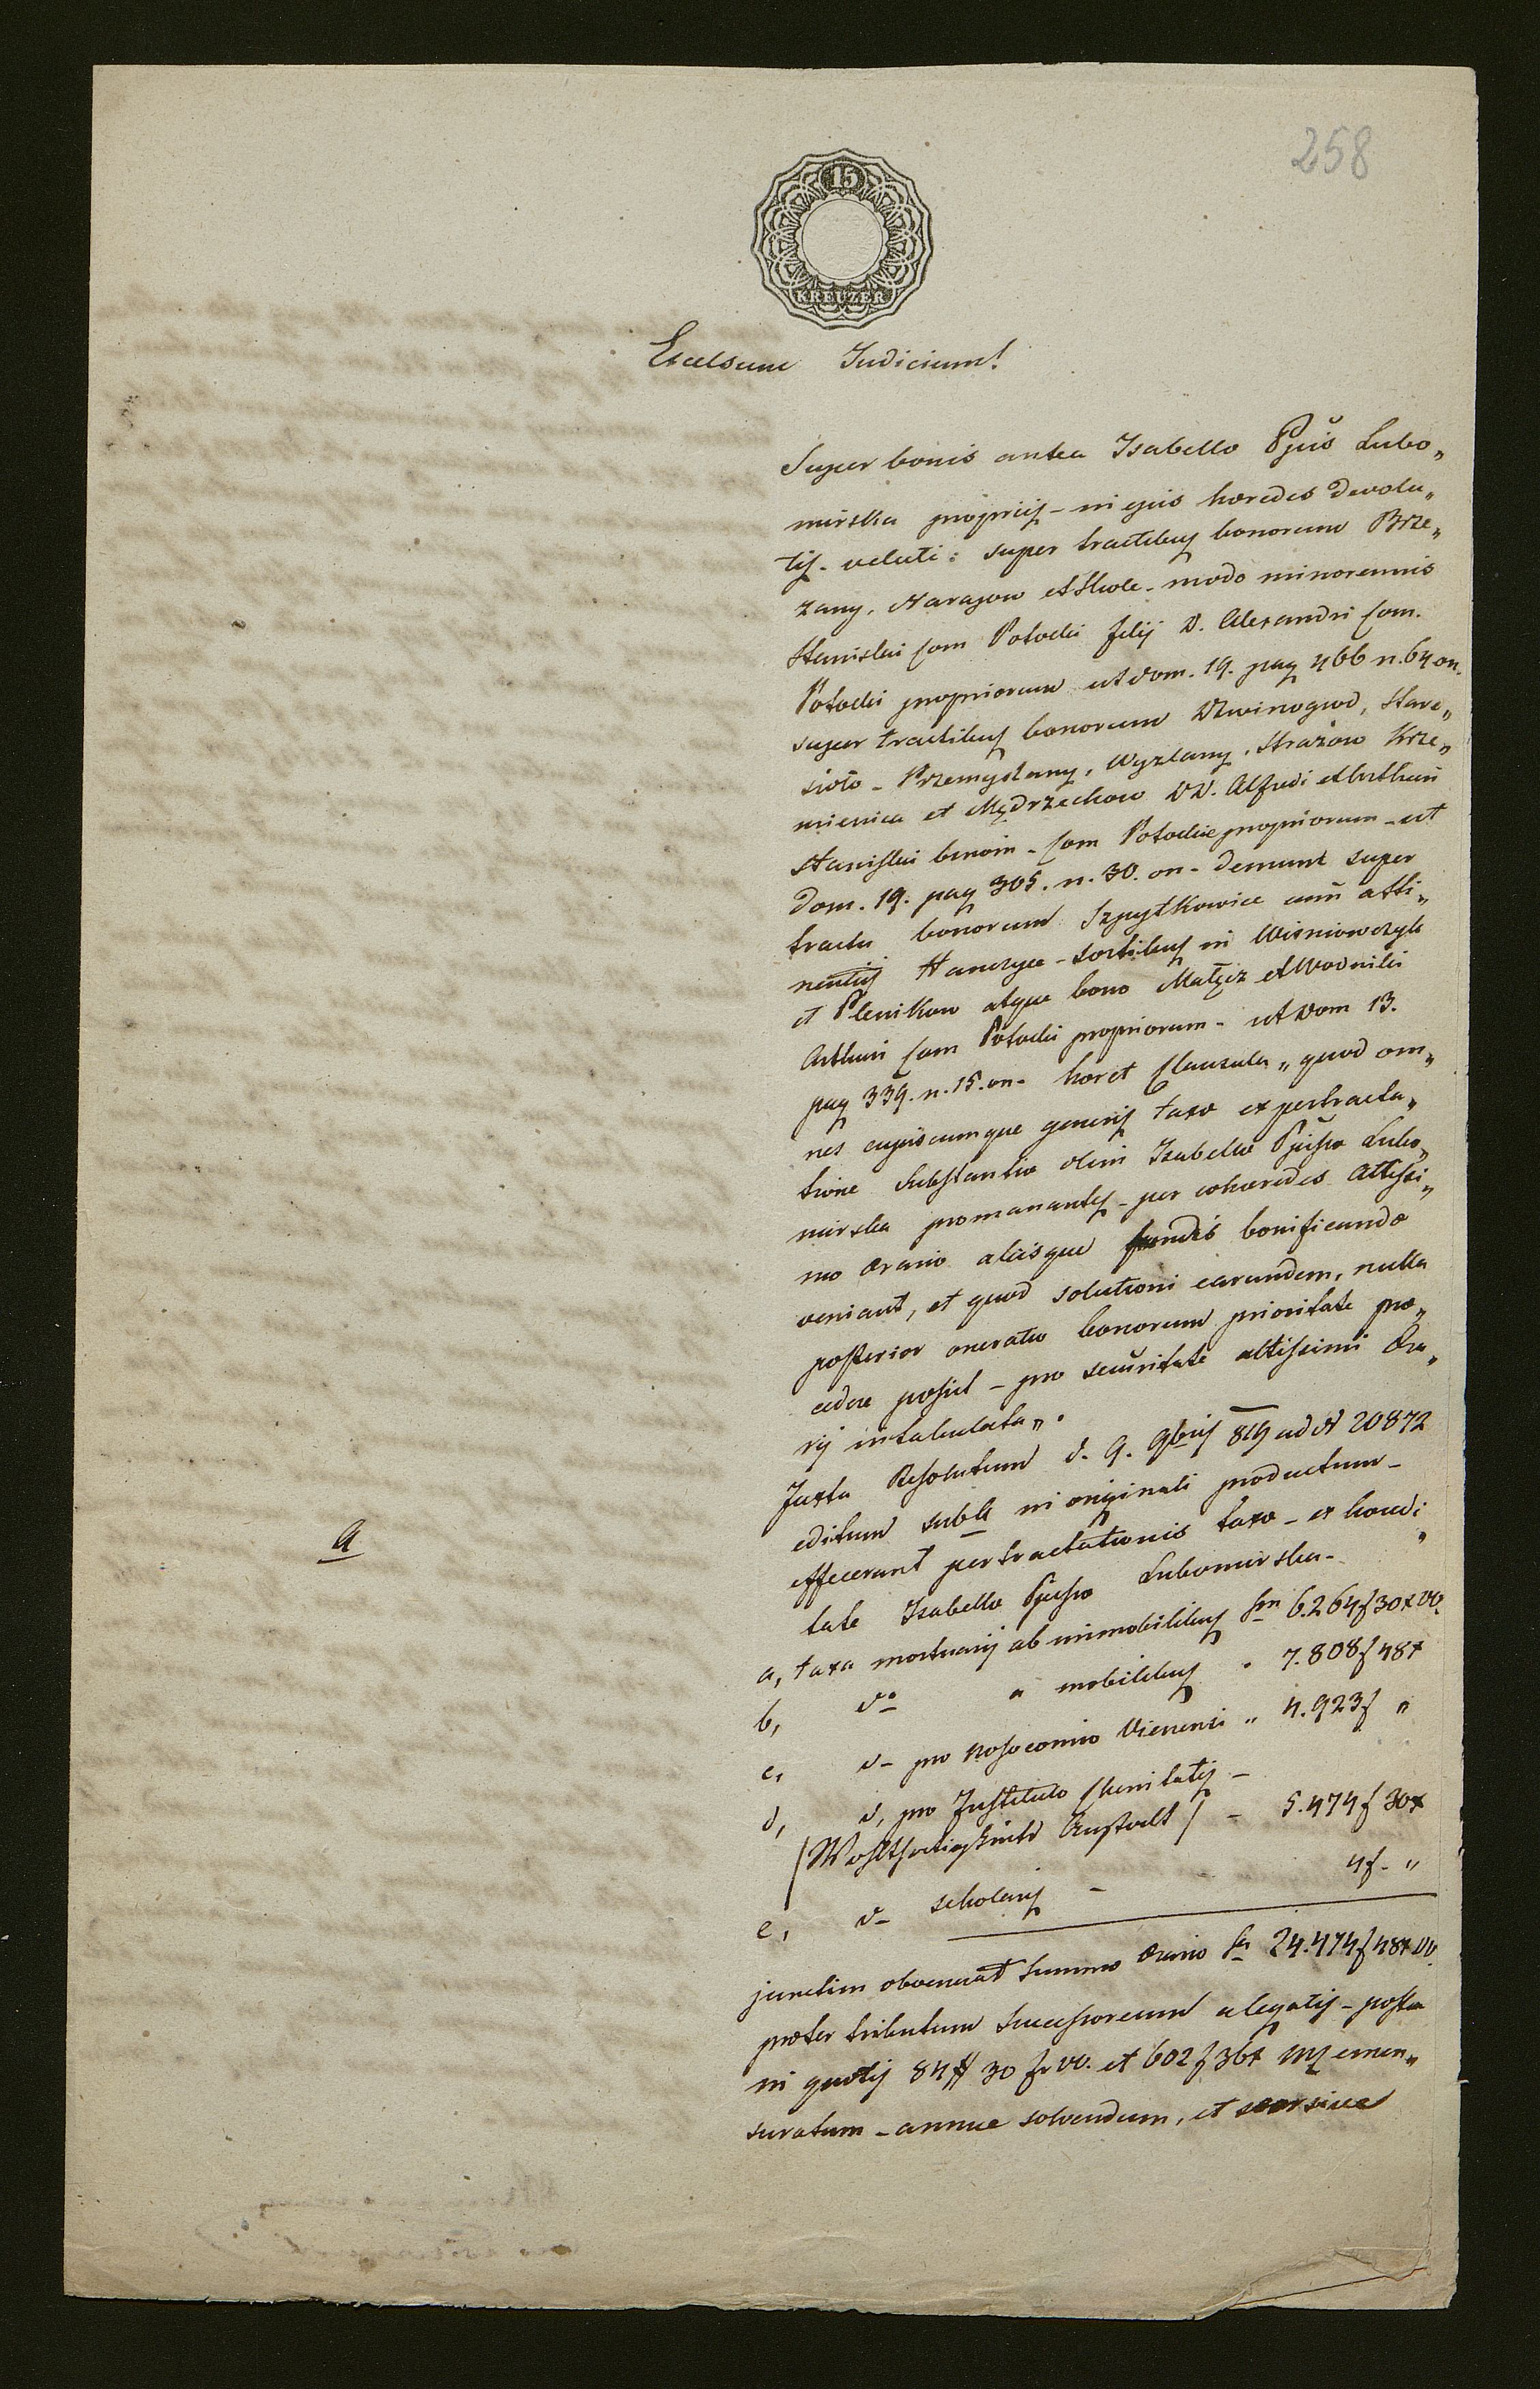 258
15
KREUZER
Excelsum Judicium!
Super bonis antea Isabella Ppiis Lubo„
mirska proprijs – in ejus hæredes devolu„
tis. veluti: super tractibus bonorum Brze„
zany, Narajow et Hole – modo minorennis
Stanislai Com Potocki filij D. Alexandri Com.
Potocki propriorum ut dom. 19. pag 466 n. 64 on.
super tractibus bonorum Dzwinogrod, Stare„
sioło – Przemyslany, Wyzlany, Strażow Krze„
mienica et Mędrzechow DD. Alfredi et Arthuri
Stanislai binom – Com Potockie propriorum – ut
dom. 19. pag 305. n. 30. on – demum super
tractu bonorum Szpytkowice cum atti„
nentijs Hanczyce – sortibus in Wisniowczyk
et Plenikow atque bono Małęcz et Wodniki
Arthuri Com Potocki propriorum – ut Dom 13.
pag 339. n. 15. on – hæret Clausula „quod om„
nes cujuscumque generis taxæ ex pertracta„
tione Substantiæ olim Isabellæ Ppissæ Lubo„
mirska promanantes – per cohæredes Altissi„
mo Ærario aliisque fundis bonificandæ
veniant, et quod solutioni earundem, nulla
posterior oneratio bonorum prioritate præ„
cedere possit – pro securitate altissimi Æra„
rij intabulata„.
Juxta Resolutum d. 9. 9bris 819 ad N 20872
editum sub A in originali productum –
effecerunt pertractationis taxæ – ex hæredi„
tate Isabellæ Ppissæ Lubomirska –
A
a, taxa mortuarij ab immobilibus 6.264f 30x VV.
b, do a mobilibus . 7.808f 48x
c, d– pro Nosocomio Vienensi „ 4.923f „
d, d, pro Instituto Clenitatis –
/Wohlthätigkeits Anstalt/ – 5.474f 30x
e, d– scholaris – 4f. „
junctim obvenerat Summo Ærario 24.474f 48x VV.
præter tributum Successoreum a legatis – postea
in quotis 84# 30 fr VV. et 602f 36x emen„
suratum – annue solvendum, et seorsive